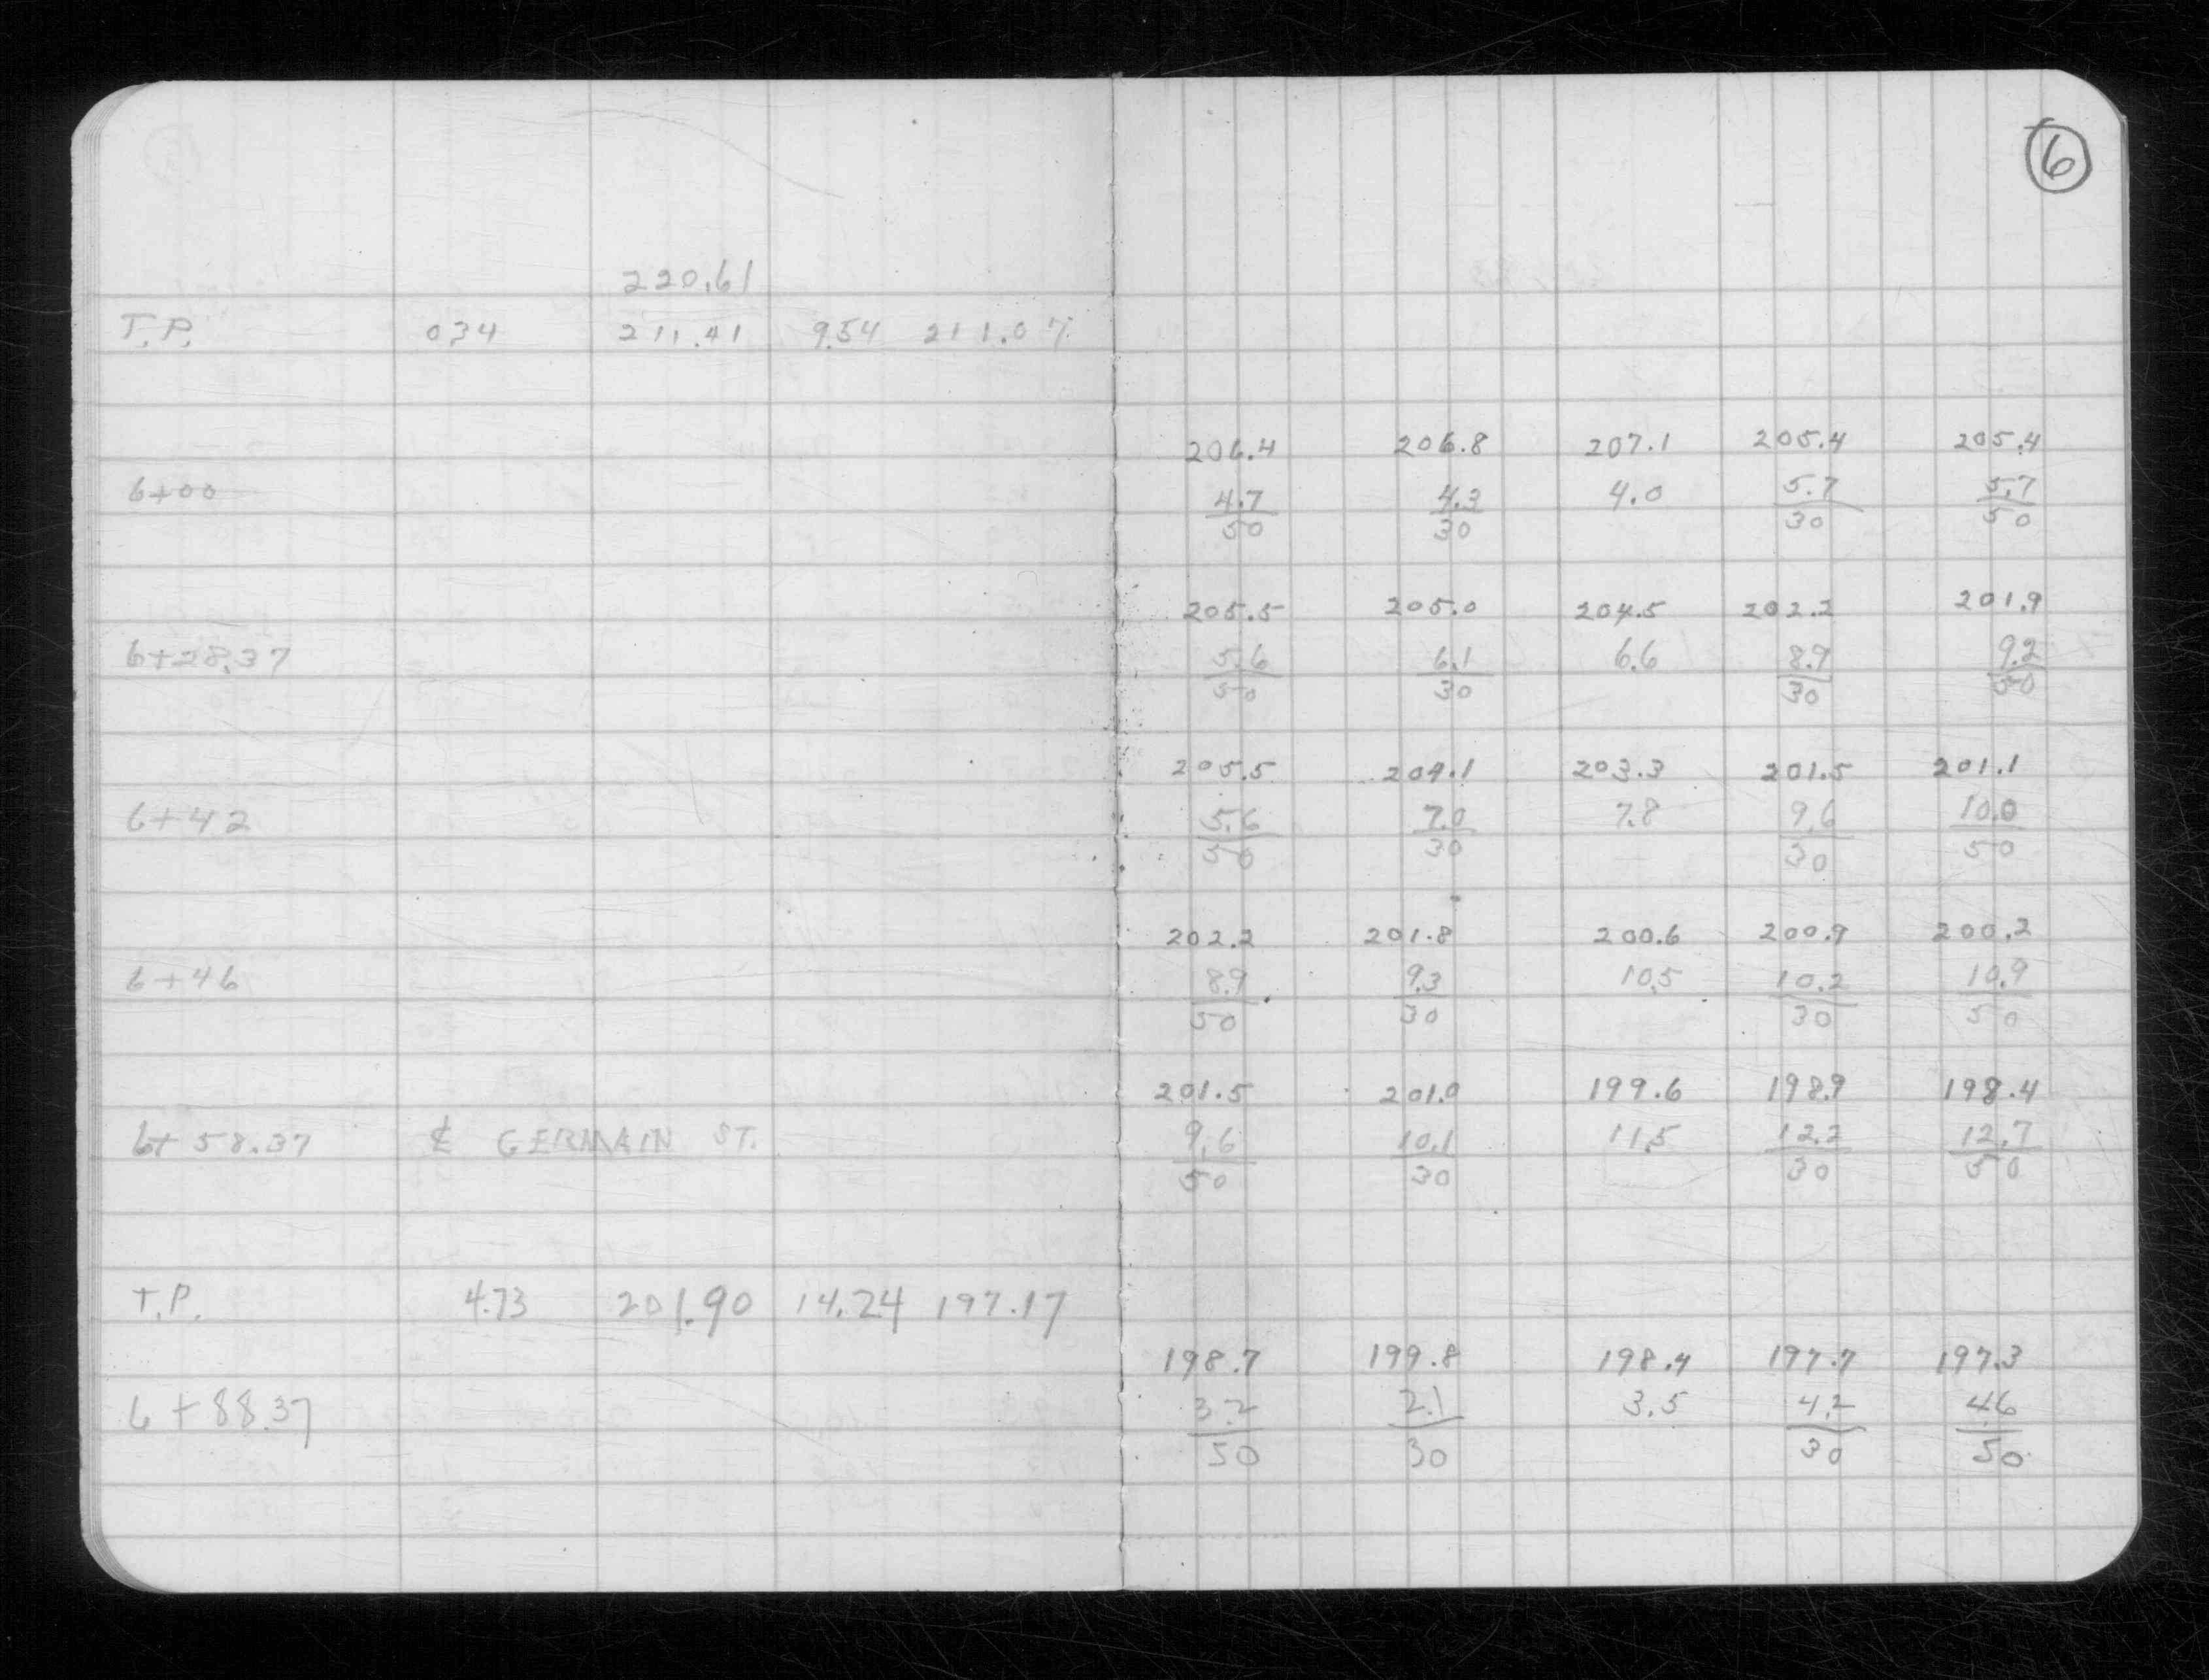 6
220.61
T.P. 0.34 211.41 9.54 211.07
206.4 206.8 207.1 205.4 205.4
6+00 4.7 4.3 4.0 5.7 5.7
50 30 30 50
205.5 205.0 204.5 202.2 201.9
6+28.37 5.6 6.1 6.6 8.9 9.2
50 30 30 50
205.5 204.1 203.3 201.5 201.1
6+42 5.6 7.0 7.8 9.6 10.0
50 30 30 50
202.2 201.8 200.6 200.9 200.2
6+46 8.9 9.3 10.5 10.2 10.9
50 30 30 50
201.5 201.0 199.6 198.9 198.4
6+58.37 ℄ GERMAIN ST. 9.6 10.1 11.5 12.2 12.7
50 30 30 50
T.P. 4.73 201.90 14.24 197.17
198.7 199.8 198.4 197.7 197.3
6+88.37 3.2 2.1 3.5 4.2 4.6
50 30 30 50